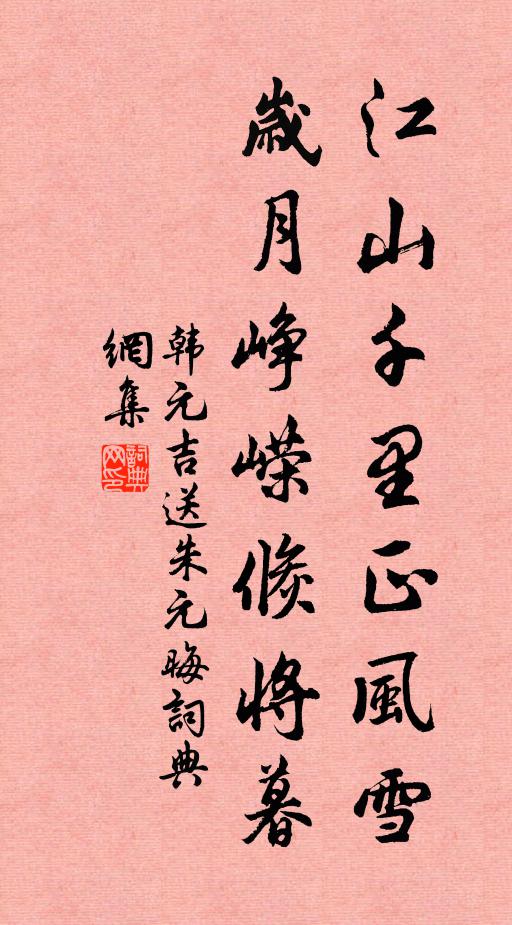 江山千里正風雪
歲月崢嶸倐將暮
韩元吉送朱元晦詞典
網集
詞典網印